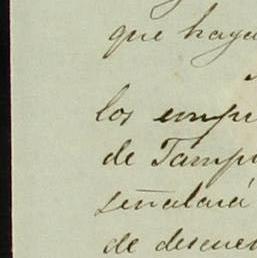 que haya
los empr
de Tampi
señalará
de descuen